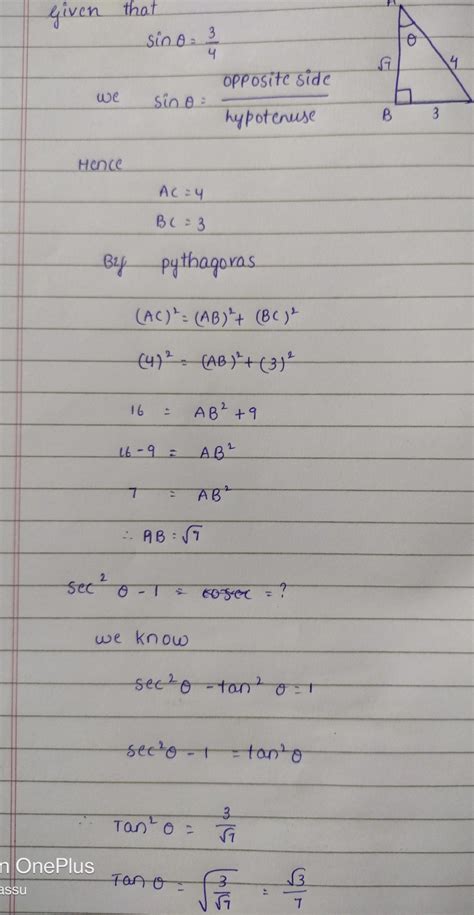 Given that
sin θ = 3/4
we sin θ = opposite side / hypotenuse
A
θ
√7
4
B
3
Hence
AC = 4
BC = 3
By pythagoras
(AC)² = (AB)² + (BC)²
(4)² = (AB)² + (3)²
16 = AB² + 9
16 - 9 = AB²
7 = AB²
∴ AB = √7
sec² θ - 1 = cosec = ?
we know
sec² θ - tan² θ = 1
sec² θ - 1 = tan² θ
∴ Tan² θ = 3/√7
Tan θ = √(3/√7) = √3/7
n OnePlus
assu